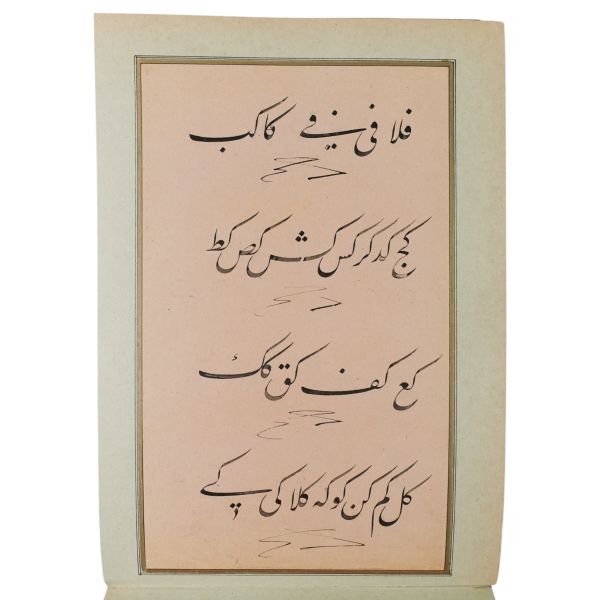 فلا فی فے کا کب
کج کد کر کس کش کص کط
کع کف کق کک
کل کم کن کو که کلا کی کے